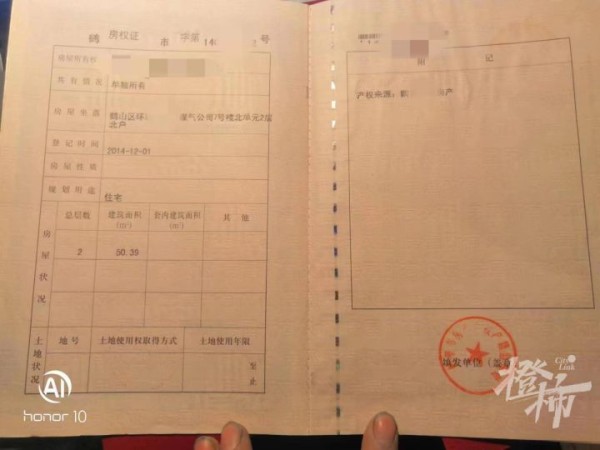 鹤 房权证 市 字第 14 号
房屋所有权
共有情况 单独所有
房屋坐落 鹤山区环 煤气公司7号楼北单元2层
北户
登记时间 2014-12-01
房屋性质
规划用途 住宅
房屋状况
总层数 建筑面积(m²) 套内建筑面积(m²) 其他
2 50.39
土地状况
地号 土地使用权取得方式 土地使用年限
至
止
附 记
产权来源: 产
填发单位(盖章)
AI
honor 10
City Link
橙柿